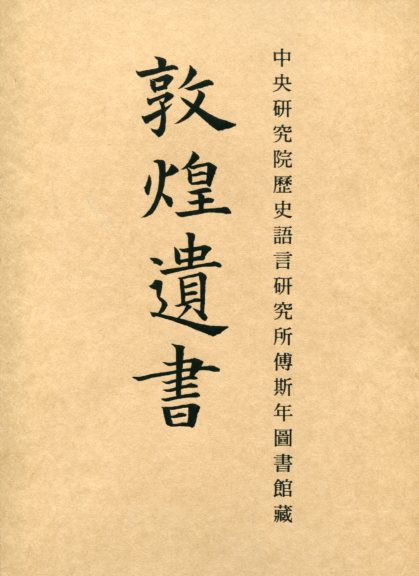 中央研究院歷史語言研究所傅斯年圖書館藏
敦煌遺書